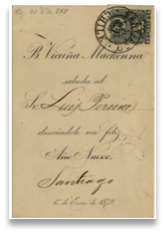 B. Vicuña Mackenna
saluda al
Sr. Luis Pereira
deseándole un feliz
Año Nuevo.
Santiago
6 de Enero de